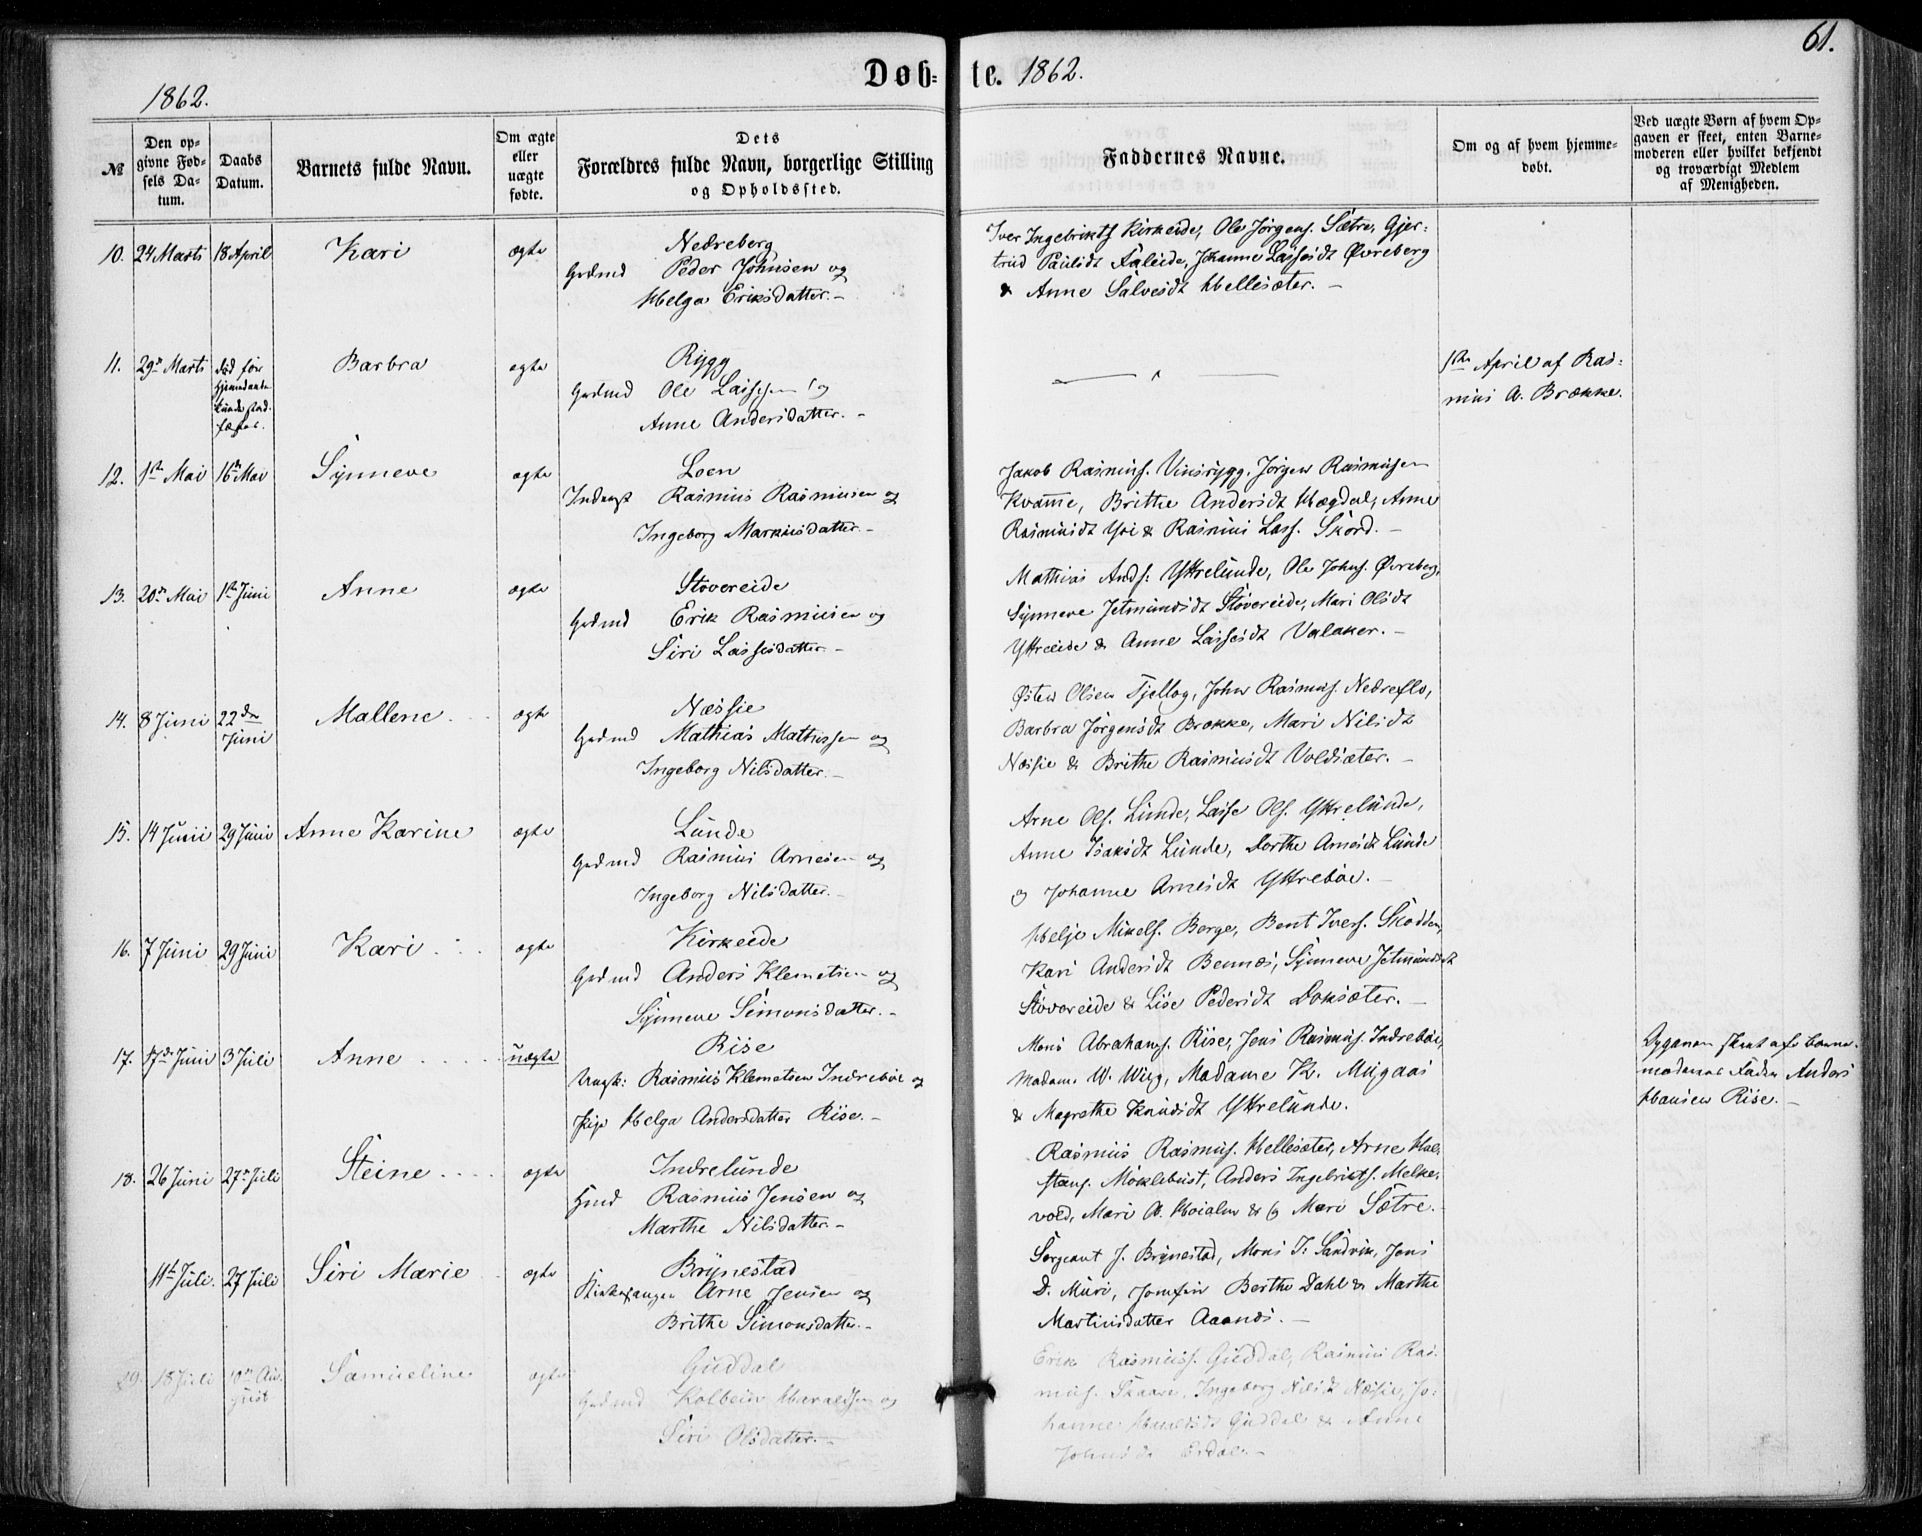 61.
1862.
Døb-
te. 1862.
№
Den op-
givne Fød-
sels Da-
tum.
Daabs
Datum.
Barnets fulde Navn.
Om ægte
eller
uægte
fødte.
Dets
Forældres fulde Navn, borgerlige Stilling
og Opholdssted.
Faddernes Navne.
Om og af hvem hjemme-
døbt.
Ved uægte Børn af hvem Op-
gaven er skeet, enten Barne-
moderen eller hvilket bekjendt
og troværdigt Medlem
af Menigheden.
10. 24 Marts 18 April Kari ægte
Nedreberg
Gadmd Peder Johnsen og
Helga Eriksdatter.-
Iver Ingebrikts Kirkeide, Ole Jørgens. Sætre, Gjer-
trud Paulsdt Faleide, Johanne Lassesdt Øvreberg
& Anne Salvesdt Hellesæter.-
11. 29n Marts død før
stad-
fæstet.
Barbra ægte
Rygg
Gadmd Ole Lassesen og
Anne Andersdatter.-
1ste April af Ras-
mus A. Brække.
12. 1ste Mai 16n Mai Synneve ægte
Loen
Inderst Rasmus Rasmussen og
Ingeborg Markusdatter.-
Jakob Rasmuss. Vinsrygg, Jørgen Rasmussen
Kvamme, Brithe Andersdt Hægdal, Anne
Rasmusdt Yri & Rasmus Lass. Skord.-
13. 20n Mai 1ste Juni Anne ægte
Støvereide
Gadmd Erik Rasmussen og
Siri Lassesdatter.-
Mathias Ands. Yttrelunde, Ole Johns. Øvreberg,
Synneve Jetmundsdt Støvereide, Mari Olsdt
Yttreeide & Anne Lassesdt Valaker.-
14. 8 Juni 22de
Juni
Mallene ægte
Næssie
Gadmd Mathias Mathissen og
Ingeborg Nilsdatter.-
Østen Olsen Tjellog, John Rasmus. Nedreflo,
Barbra Jørgensdt Brække, Mari Nilsdt
Næssie & Brithe Rasmusdt Voldsæter.-
15. 14 Juni 29 Juni Anne Karine ægte
Lunde
Gadmd Rasmus Arnesen og
Ingeborg Nilsdatter.-
Arne Ols. Lunde, Lasse Ols. Yttrelunde,
Anne Isaksdt Lunde, Dorthe Arnesdt Lunde
og Johanne Arnesdt Yttrebøe.-
16. 7 Juni 29 Juni Kari ægte
Kirkeide
Gadmd Anders Klemetsen og
Synneve Simonsdatter.-
Helje Mikels. Berge, Bent Ivers. Skodden,
Kari Andersdt Bennes, Synneve Jetmundsdt
Støvereide & Lise Pedersdt Doksæter.-
17. 17de Juni 3 Juli Anne uægte
Rise
Ungk: Rasmus Klemetsen Indrebøe og
Pige Helga Andersdatter Rise.-
Mons Abrahams. Rise, Jens Rasmus. Indrebøe,
Madam W. Wiig, Madame K. Mugaas
& Magrethe Knudsdt Yttrelunde.
Opgaven skeet afs barne-
moderens Fader Anders
Hansen Rise.-
18. 26 Juni 27n Juli Steine ægte
Indrelunde
Hmd Rasmus Jensen og
Marthe Nilsdatter.-
Rasmus Rasmus. Hellesæter, Arne Hal-
stens. Møklebust, Anders Ingebrikts. Melke-
vold, Mari A. Hoialm & Mari Sætre.-
11te Juli. 27 Juli Siri Marie ægte
Brynestad
Kirkesanger Arne Jensen og
Brithe Simonsdatter.-
Sergeant J. Brynestad, Mons T. Sandvik, Jens
D. Muri, Jomfru Berthe Dahl & Marthe
Martinsdatter Aaønes.-
18 Juli 10n Au-
gust
Samueline ægte
Guddal
Gadmd Kolbein Haraldsen og
Siri Olsdatter.-
Erik Rasmuss. Guddal, Rasmus Ras-
mus. Skaare, Ingeborg Nilsdt Næsie, Jo-
hanne Guddal & Anne
Johnsdt Erdal.-